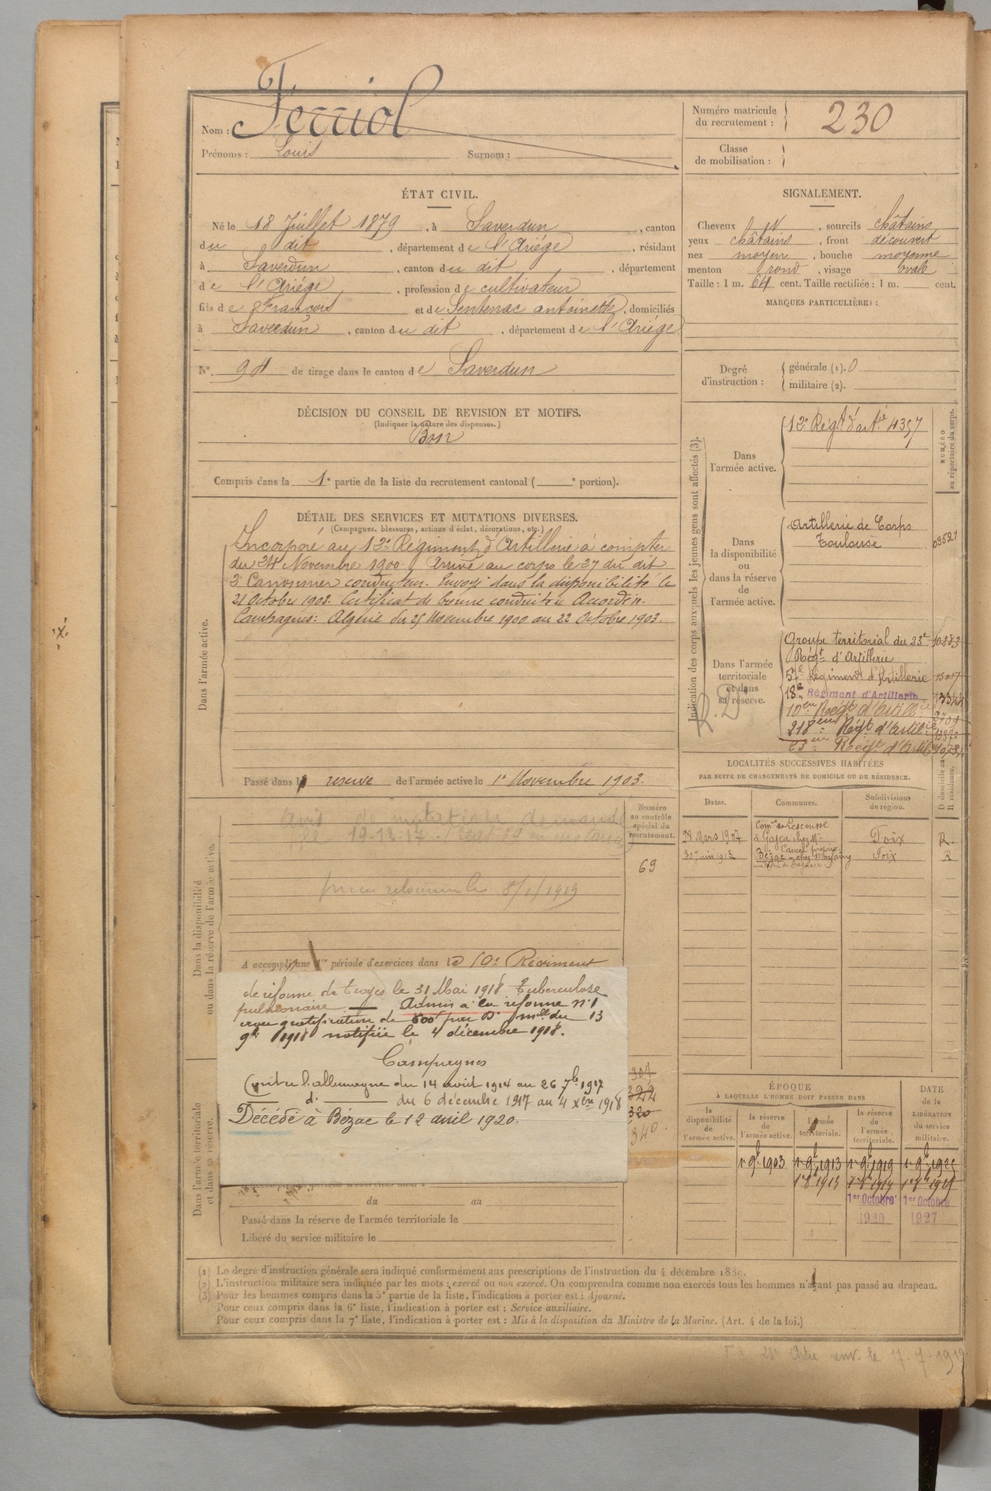 Nom : Ferriol
Prénoms : Louis Surnom :
Numéro matricule du recrutement : 230
Classe de mobilisation :
ÉTAT CIVIL.
Né le 18 Juillet 1879, à Saverdun, canton
du dit, département de l'Ariège, résidant
à Saverdun, canton du dit, département
de l'Ariège, profession de cultivateur
fils de François et de Sentenac antoinette, domiciliés
à Saverdun, canton du dit, département de l'Ariège
N° 94 de tirage dans le canton de Saverdun
SIGNALEMENT.
Cheveux et, sourcils châtains
yeux châtains, front découvert
nez moyen, bouche moyenne
menton rond, visage ovale
Taille : 1 m. 64 cent. Taille rectifiée : 1 m. cent.
MARQUES PARTICULIÈRES :
Degré d'instruction : générale (1). 0
militaire (2).
DÉCISION DU CONSEIL DE REVISION ET MOTIFS.
(Indiquer la nature des dispenses.)
Bon
Compris dans la 1e partie de la liste du recrutement cantonal ( e portion).
DÉTAIL DES SERVICES ET MUTATIONS DIVERSES.
(Campagnes, blessures, actions d'éclat, décorations, etc.)
Dans l'armée active.
Incorporé au 12e Régiment d'Artillerie à compter
du 24 Novembre 1900. Arrivé au corps le 27 du dit
2e Canonnier conducteur. Envoyé dans la disponibilité le
21 Octobre 1903. Certificat de bonne conduite Accordé.
Campagnes : Algérie du 25 Novembre 1900 au 22 Octobre 1903.
Passé dans la réserve de l'armée active le 1er Novembre 1903.
Indication des corps auxquels les jeunes gens sont affectés (3).
NUMÉRO au répertoire du corps.
Dans l'armée active.
12e Régt d'artie 4357
Dans la disponibilité ou dans la réserve de l'armée active.
Artillerie de Corps
Toulouse
Dans l'armée territoriale et dans sa réserve.
R.D.
Groupe territorial du 23e
Régt d'Artillerie
57e Régiment d'Artillerie
18e Régiment d'Artillerie
10eme Régt d'Artillie
218eme Régt d'Artillie
Régt d'Artillie
LOCALITÉS SUCCESSIVES HABITÉES
PAR SUITE DE CHANGEMENTS DE DOMICILE OU DE RÉSIDENCE.
Dates. Communes. Subdivisions de région. D. domicile ou R. résidence.
28 Mars 1907 Foix R.
Bézac Foix R
Dans la disponibilité ou dans la réserve de l'armée active.
Numéro au contrôle spécial du recrutement.
69
avis de mutation demandé
8/1/1919
A accompli une 1re période d'exercices dans le 10e Régiment
de réforme de Troyes le 31 Mai 1918 Tuberculose
pulmonaire — Admis à la réforme n° 1
avec gratification de 600f par Don mlle du 13
9bre 1918 notifiée le 4 décembre 1918.
Campagnes
Contre l'allemagne du 14 avril 1914 au 26 7bre 1917
— d° — du 6 décembre 1917 au 4 Xbre 1918
Décédé à Bézac le 12 avril 1920.
Dans l'armée territoriale et dans sa réserve.
du au
Passé dans la réserve de l'armée territoriale le
Libéré du service militaire le
ÉPOQUE
À LAQUELLE L'HOMME DOIT PASSER DANS
la disponibilité de l'armée active. la réserve de l'armée active. l'armée territoriale. la réserve de l'armée territoriale.
DATE de la LIBÉRATION du service militaire.
1er 9bre 1903 1er 9bre 1913 1er 9bre 1919
1er Octobre 1920 1er Octobre 1927
(1) Le degré d'instruction générale sera indiqué conformément aux prescriptions de l'instruction du 4 décembre 1889.
(2) L'instruction militaire sera indiquée par les mots : exercé ou non exercé. On comprendra comme non exercés tous les hommes n'ayant pas passé au drapeau.
(3) Pour les hommes compris dans la 5e partie de la liste, l'indication à porter est : Ajourné.
Pour ceux compris dans la 6e liste, l'indication à porter est : Service auxiliaire.
Pour ceux compris dans la 7e liste, l'indication à porter est : Mis à la disposition du Ministre de la Marine. (Art. 4 de la loi.)